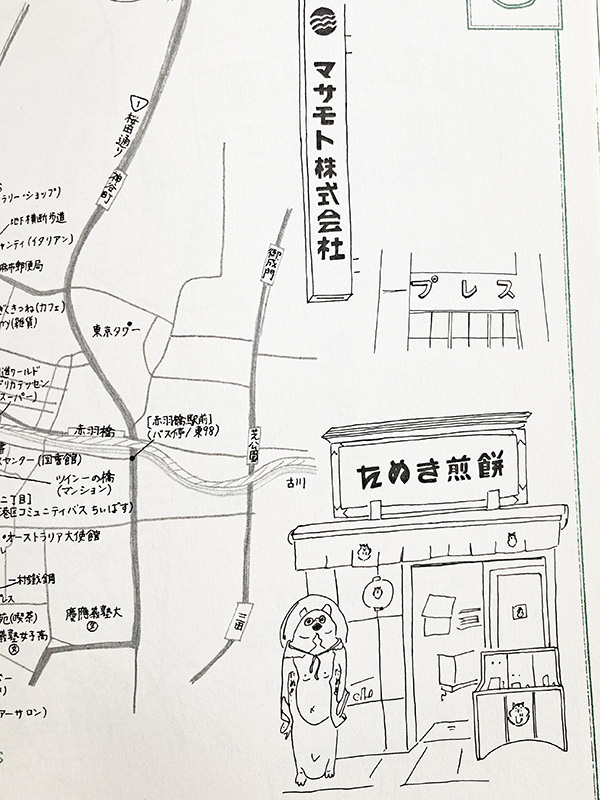 1
桜田通り
神谷町
ラリー・ショップ)
地下横断歩道
ャンティ(イタリアン)
麻布郵便局
てきつね(カフェ)
(雑貨)
東京タワー
御成門
進ワールド
デリカテッセン
スーパー)
赤羽橋
[赤羽橋駅前]
(バス停/東98)
センター(図書館)
芝公園
古川
ツイン一の橋
(マンション)
二丁目]
港区コミュニティバス ちぃばす)
オーストラリア大使館
一村鐵鋼
プレス
苑(喫茶)
義塾女子高
文
慶應義塾大
文
三田
アーサロン)
マサモト株式会社
ープレス
たぬき煎餅